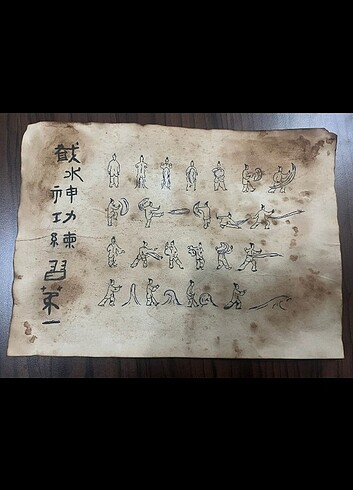 截水神功練習第一